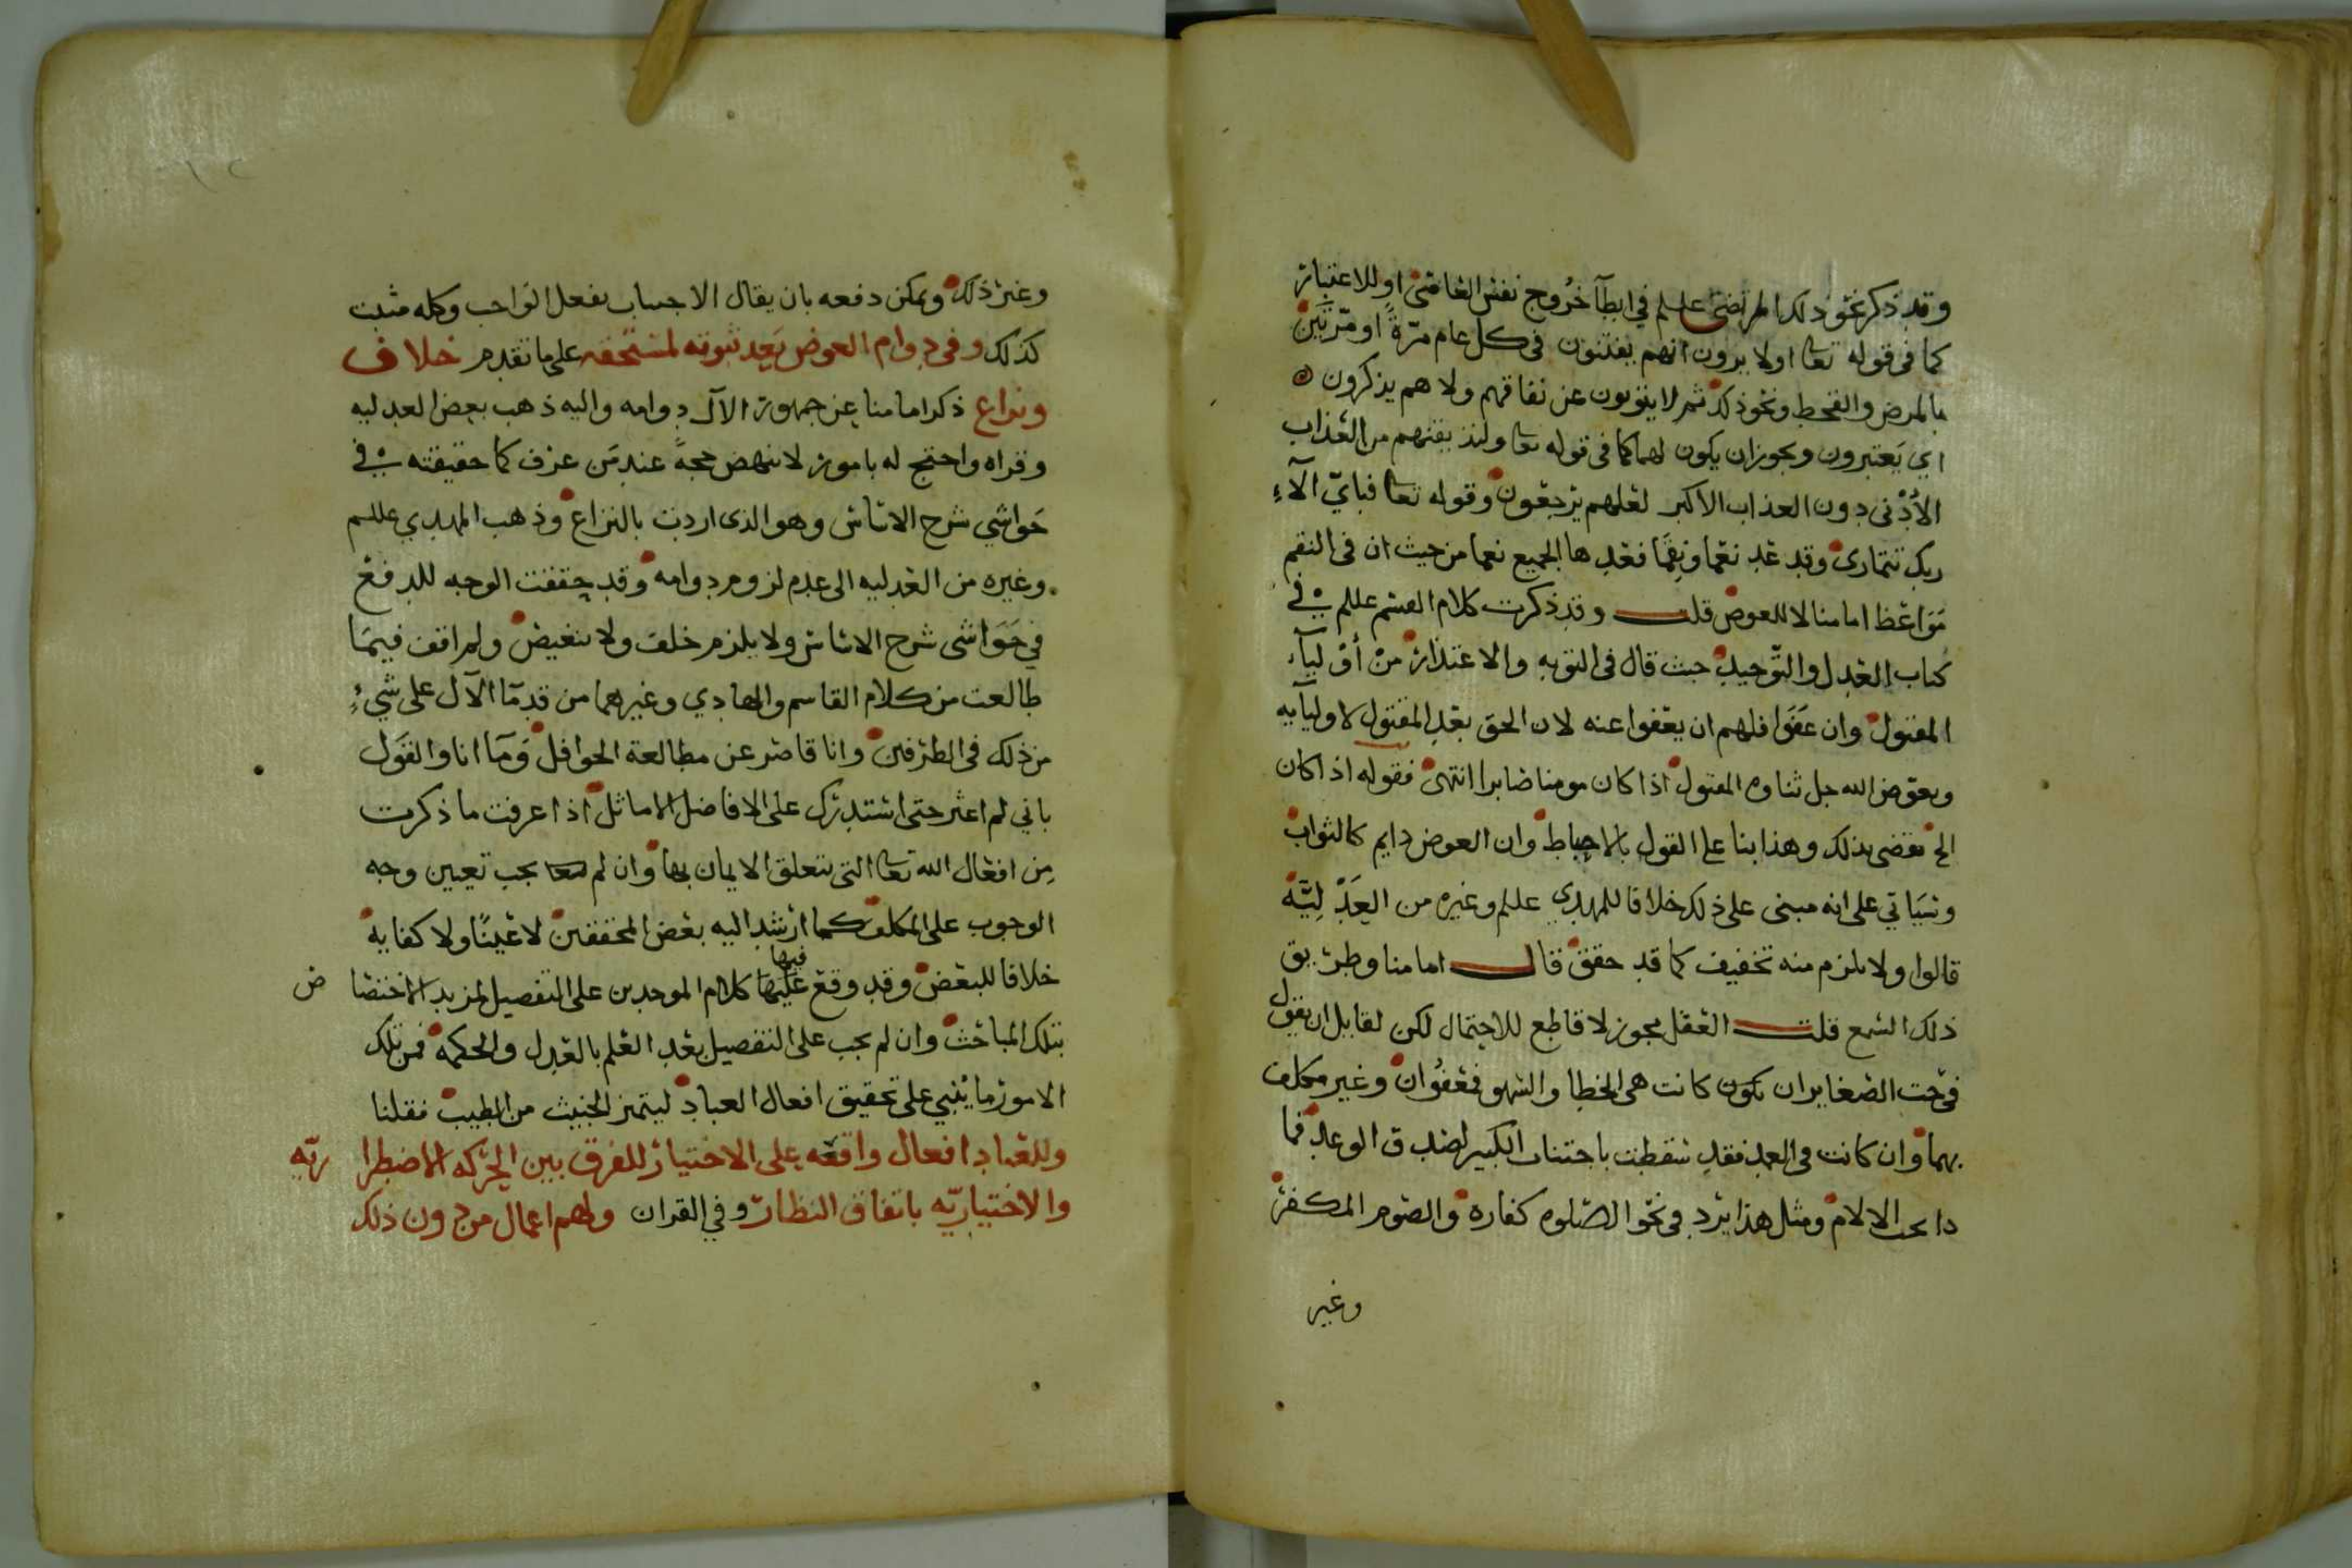 وقد ذكر نحو ذلك المرتضى عليلم في ابطآ خروج نفس العاصي او للاعتبار
كما في قوله تعا اولا يرون انهم يفتنون في كل عام مرّةً او مرّتين
بالمرض والقحط ونحو ذلك ثم لا يتوبون عن نفاقهم ولا هم يذكرون
اي يَعتبرون ويجوز ان يكون لهما كما في قوله تعا ولنذيقنهم من العذاب
الأدْنى دون العذاب الاكبر لعلهم يرجعون وقوله تعا فبايّ آلآءِ
ربك تتمارى وقد عد نعما ونِقمًا فعدها الجميع نعما من حيث ان في النقم
مَوَاعظ امامنا لا للعوض قلت وقد ذكرت كلام القسم عللم في
كتاب العدل والتّوحيد حيث قال في التوبه والاعتذار من أوْليآء
المقتول وان عَفَوا فلهم ان يعفوا عنه لان الحق بعد المقتول لاوليآيه
ويعوّض الله جل ثناوه المقتول اذا كان مومنا صابرا انتهى فقوله اذا كان
الخ تقضى بذلك وهذا بنا على القول بالاحباط وان العوض دايم كالثواب
وسَيَاتي على انه مبنى على ذلك خلافا للمهدي عللم وغيره من العَدْلِيّه
قالوا ولا يلزم منه تخفيف كما قد حقق قال امامنا وطريق
ذلك السمع قلت العقل مجوز لا قاطع للاحتمال لكن لقايل ان يقول
في حت الصغاير ان تكون كانت هي الخطا والسهو فعَفُوان وغير مكلف
بهما وان كانت في العمد فقد سقطت باجتناب الكبير لصدق الوعد فما
دا بحت الالام ومثل هذا يَرد في نحو الصّلوه كفاره والصوم المكفر
وغير
وغير ذلك ويمكن دفعه بان يقال الاجساب بفعل الواجب وكله مثبت
كذلك وفي دوام العوض بَعد ثبوته لمستحقه على ما تقدم خلاف
ونزاع ذكر امامنا عن جمهور الآل دوامه واليه ذهب بعض العدليه
وقراه واحتج له بامور لا تنهض حجةً عند مَن عرف كما حقيقته في
حَواشي شرح الاساس وهو الذى اردت بالنزاع وذهب المهدي عللم
وغيره من العدليه الى عدم لزوم دوامه وقد حققت الوجه للدفع
في حَوَاشى شرح الاساس ولا يلزم خلف ولا تنغيض ولم اقف فيمَا
طالعت من كلام القاسم والهادي وغيرهما من قدمآ الآل على شيءٍ
من ذلك في الطرفين وانا قاصر عن مطالعة الحوافل وَمَا انا والقَول
باني لم اعثر حتى استدرك على الافاضل الاماثل اذا عرفت ما ذكرت
مِن افعال الله تعا التى يتعلق الايمان بها وان لم يجب تعيين وجه
الوجوب على المكلف كما ارشد اليه بعض المحققين لا عَينًا ولا كفايه
خلافا للبعض وقد وقع عليها فيها كلام الموحدين على التفصيل لمزيد الاختصا ص
بتلك المباحث وان لم يجب على التفصيل بعد العلم بالعدل والحكمه فمن تلك
الامور ما يُبني على تحقيق افعال العباد ليتميز الخبيث من الطيب فقلنا
وللعباد افعال واقعه على الاختيار للفرق بين الحركه الاضطرا ريّه
والاختياريّه باتفاق النظار وفي القران ولهم اعمال من دون ذلك